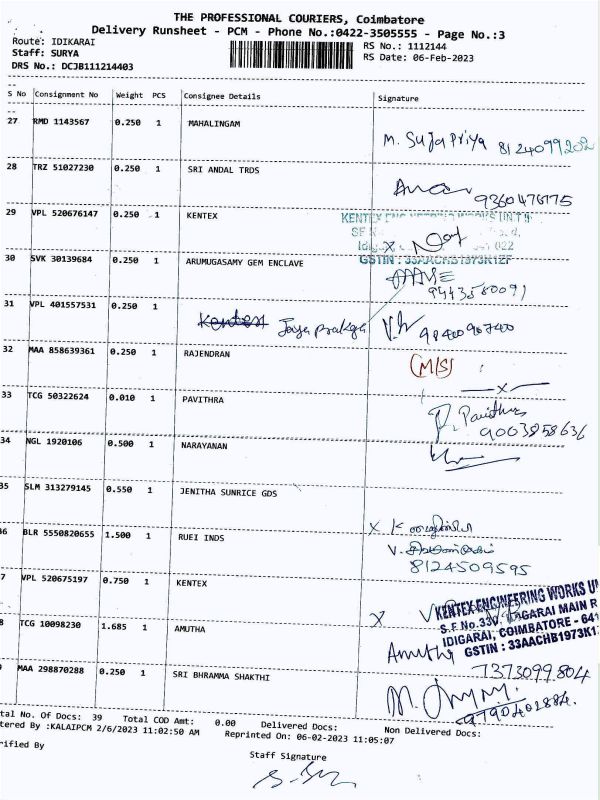 THE PROFESSIONAL COURIERS, Coimbatore
Delivery Runsheet - PCM - Phone No.:0422-3505555 - Page No.:3
Route: IDIKARAI
RS No.: 1112144
Staff: SURYA
RS Date: 06-Feb-2023
DRS No.: DCJB111214403
S No Consignment No Weight PCS Consignee Details Signature
27 RMD 1143567 0.250 1 MAHALINGAM
M. Sujapriya 8124099202
28 TRZ 51027230 0.250 1 SRI ANDAL TRDS
9360476775
29 VPL 520676147 0.250 1 KENTEX
KENTEX ENGINEERING WORKS UNIT
GSTIN : 33AACHB1973K1ZF
30 SVK 30139684 0.250 1 ARUMUGASAMY GEM ENCLAVE
9443580091
31 VPL 401557531 0.250 1
Kentex Jaya prakash
32 MAA 858639361 0.250 1 RAJENDRAN
(M/S)
x
33 TCG 50322624 0.010 1 PAVITHRA
P. Pavithra
9003858636
34 NGL 1920106 0.500 1 NARAYANAN
35 SLM 313279145 0.550 1 JENITHA SUNRICE GDS
x K
36 BLR 5550820655 1.500 1 RUEI INDS
V.
8124509595
7 VPL 520675197 0.750 1 KENTEX
x
KENTEX ENGINEERING WORKS UN
S.F.No.330, IDIGARAI MAIN R
IDIGARAI, COIMBATORE - 641
GSTIN : 33AACHB1973K1
8 TCG 10098230 1.685 1 AMUTHA
Amuthi
7373099804
MAA 298870288 0.250 1 SRI BHRAMMA SHAKTHI
9790402884.
tal No. Of Docs: 39 Total COD Amt: 0.00 Delivered Docs: Non Delivered Docs:
tered By :KALAIPCM 2/6/2023 11:02:50 AM Reprinted On: 06-02-2023 11:05:07
rified By
Staff Signature